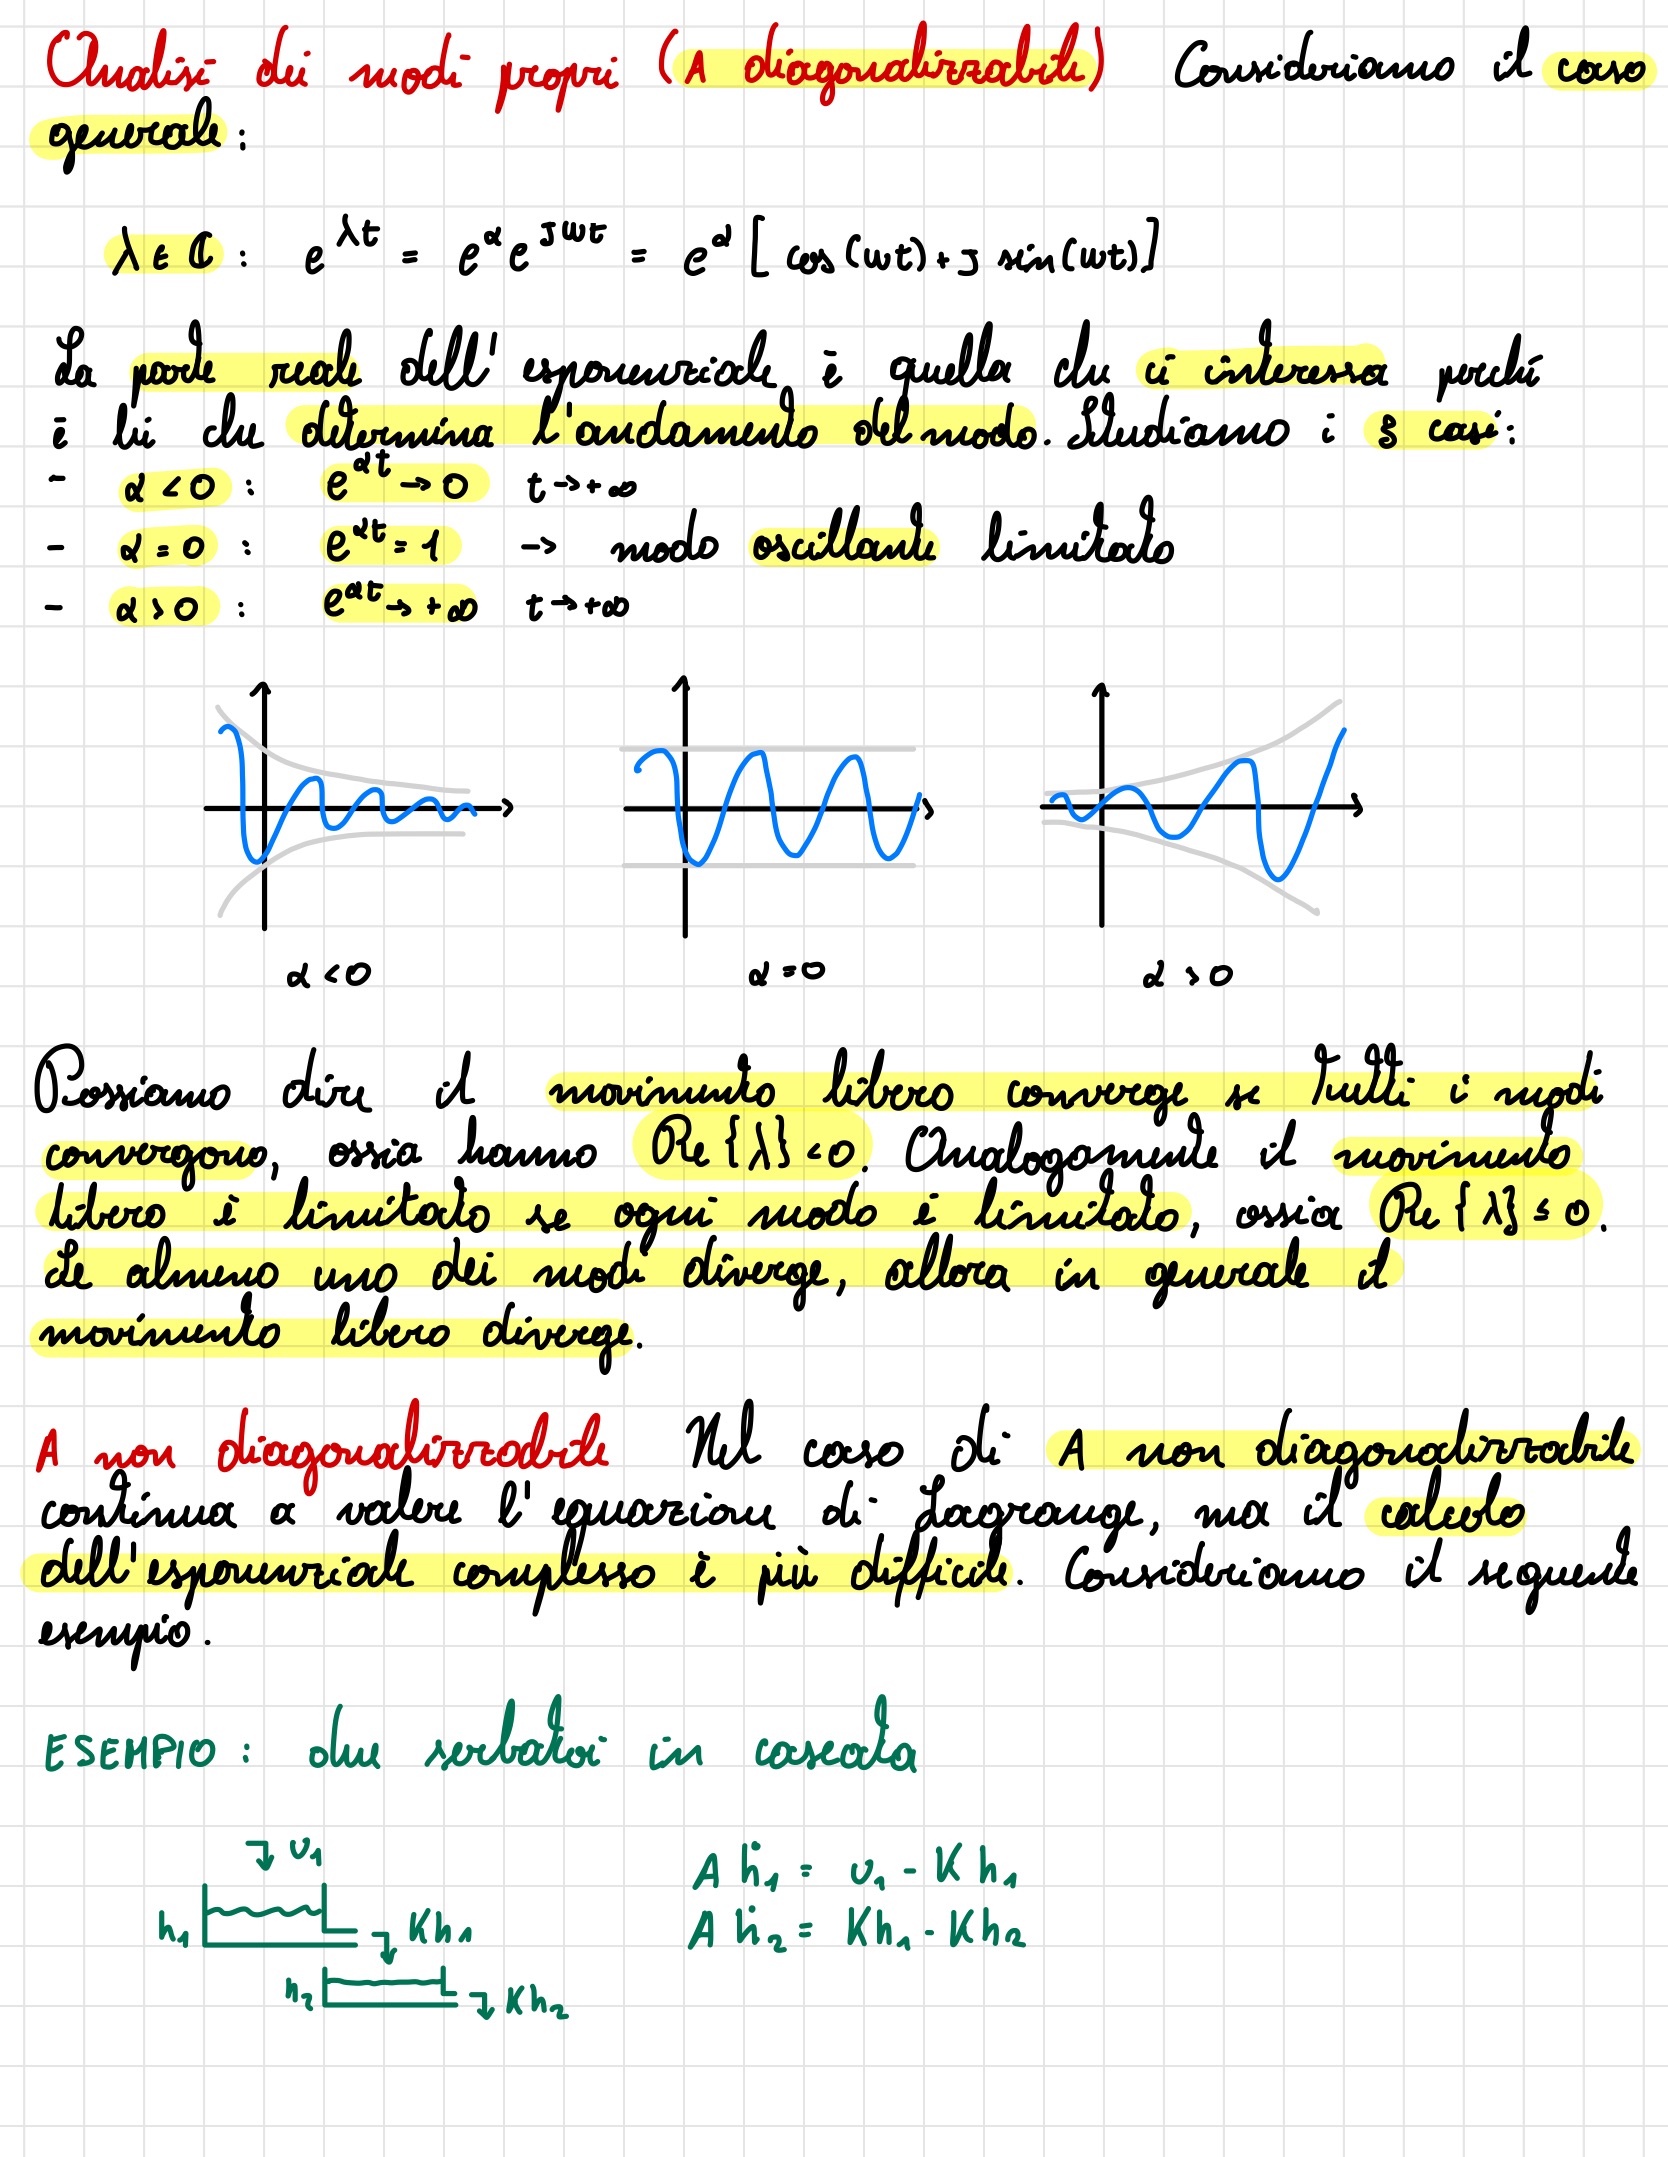 Analisi dei modi propri (A diagonalizzabile) Consideriamo il caso
generale:
λ ∈ ℂ : e^{λt} = e^{α} e^{Jωt} = e^{α} [cos(ωt) + J sin(ωt)]
La parte reale dell'esponenziale è quella che ci interessa perché
è lei che determina l'andamento del modo. Studiamo i 3 casi:
- α < 0 : e^{αt} → 0 t → +∞
- α = 0 : e^{αt} = 1 → modo oscillante limitato
- α > 0 : e^{αt} → +∞ t → +∞
α < 0 α = 0 α > 0
Possiamo dire il movimento libero converge se tutti i modi
convergono, ossia hanno Re{λ} < 0. Analogamente il movimento
libero è limitato se ogni modo è limitato, ossia Re{λ} ≤ 0.
Se almeno uno dei modi diverge, allora in generale il
movimento libero diverge.
A non diagonalizzabile Nel caso di A non diagonalizzabile
continua a valere l'equazione di Lagrange, ma il calcolo
dell'esponenziale complesso è più difficile. Consideriamo il seguente
esempio.
ESEMPIO : due serbatoi in cascata
υ₁
h₁ Kh₁
h₂ Kh₂
A ḣ₁ = υ₁ - K h₁
A ḣ₂ = Kh₁ - Kh₂